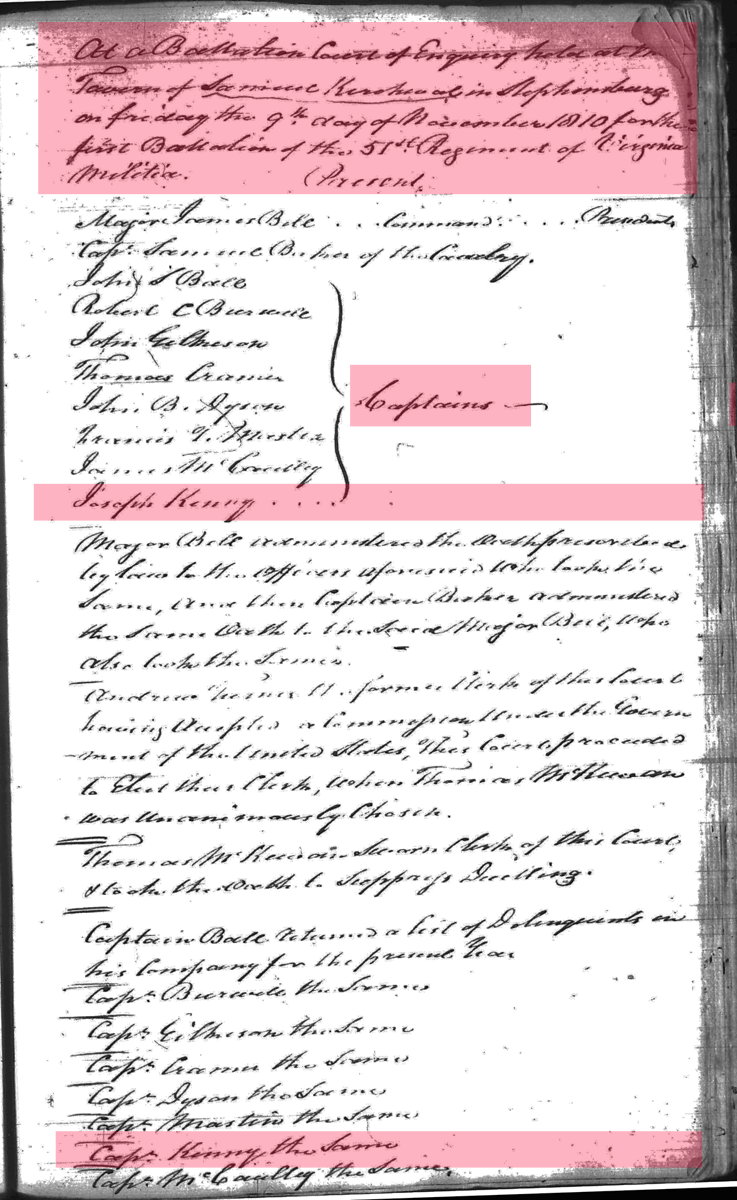 At a Battalion Court of Enquiry held at the
Tavern of Samuel Kercheval in Stephensburg
on friday the 9th day of November 1810 for the
first Battalion of the 51st Regiment of Virginia
Militia. Present,
Major James Bell . . . Command. . . . President
Capt. Samuel Baker of the Cavalry.
John S Ball
Robert C Burwell
John Gilkeson
Thomas Cramer
John B. Dyson
Francis T. Martin
James McCaulley
Joseph Kenny . . . .
Captains —
Major Bell administered the Oath prescribed
by law to the officers aforesaid who took the
Same, And then Captain Baker administered
the Same Oath to the Said Major Bell, who
also took the Same.
Andrew former Clerk of this Court
having Accepted a Commission Under the Govern
-ment of the United States, This Court proceeded
to Elect their Clerk, when Thomas McKewan
was Unanimously Chosen.
Thomas McKewan Sworn Clerk of this Court,
& took the Oath to Suppress Duelling.
Captain Ball returned a list of Delinquents in
his Company for the present Year
Capt. Burwell the Same
Capt. Gilkeson the Same
Capt. Cramer the Same
Capt. Dyson the Same
Capt. Martin the Same
Capt. Kinny the Same
Capt. McCaulley the Same.